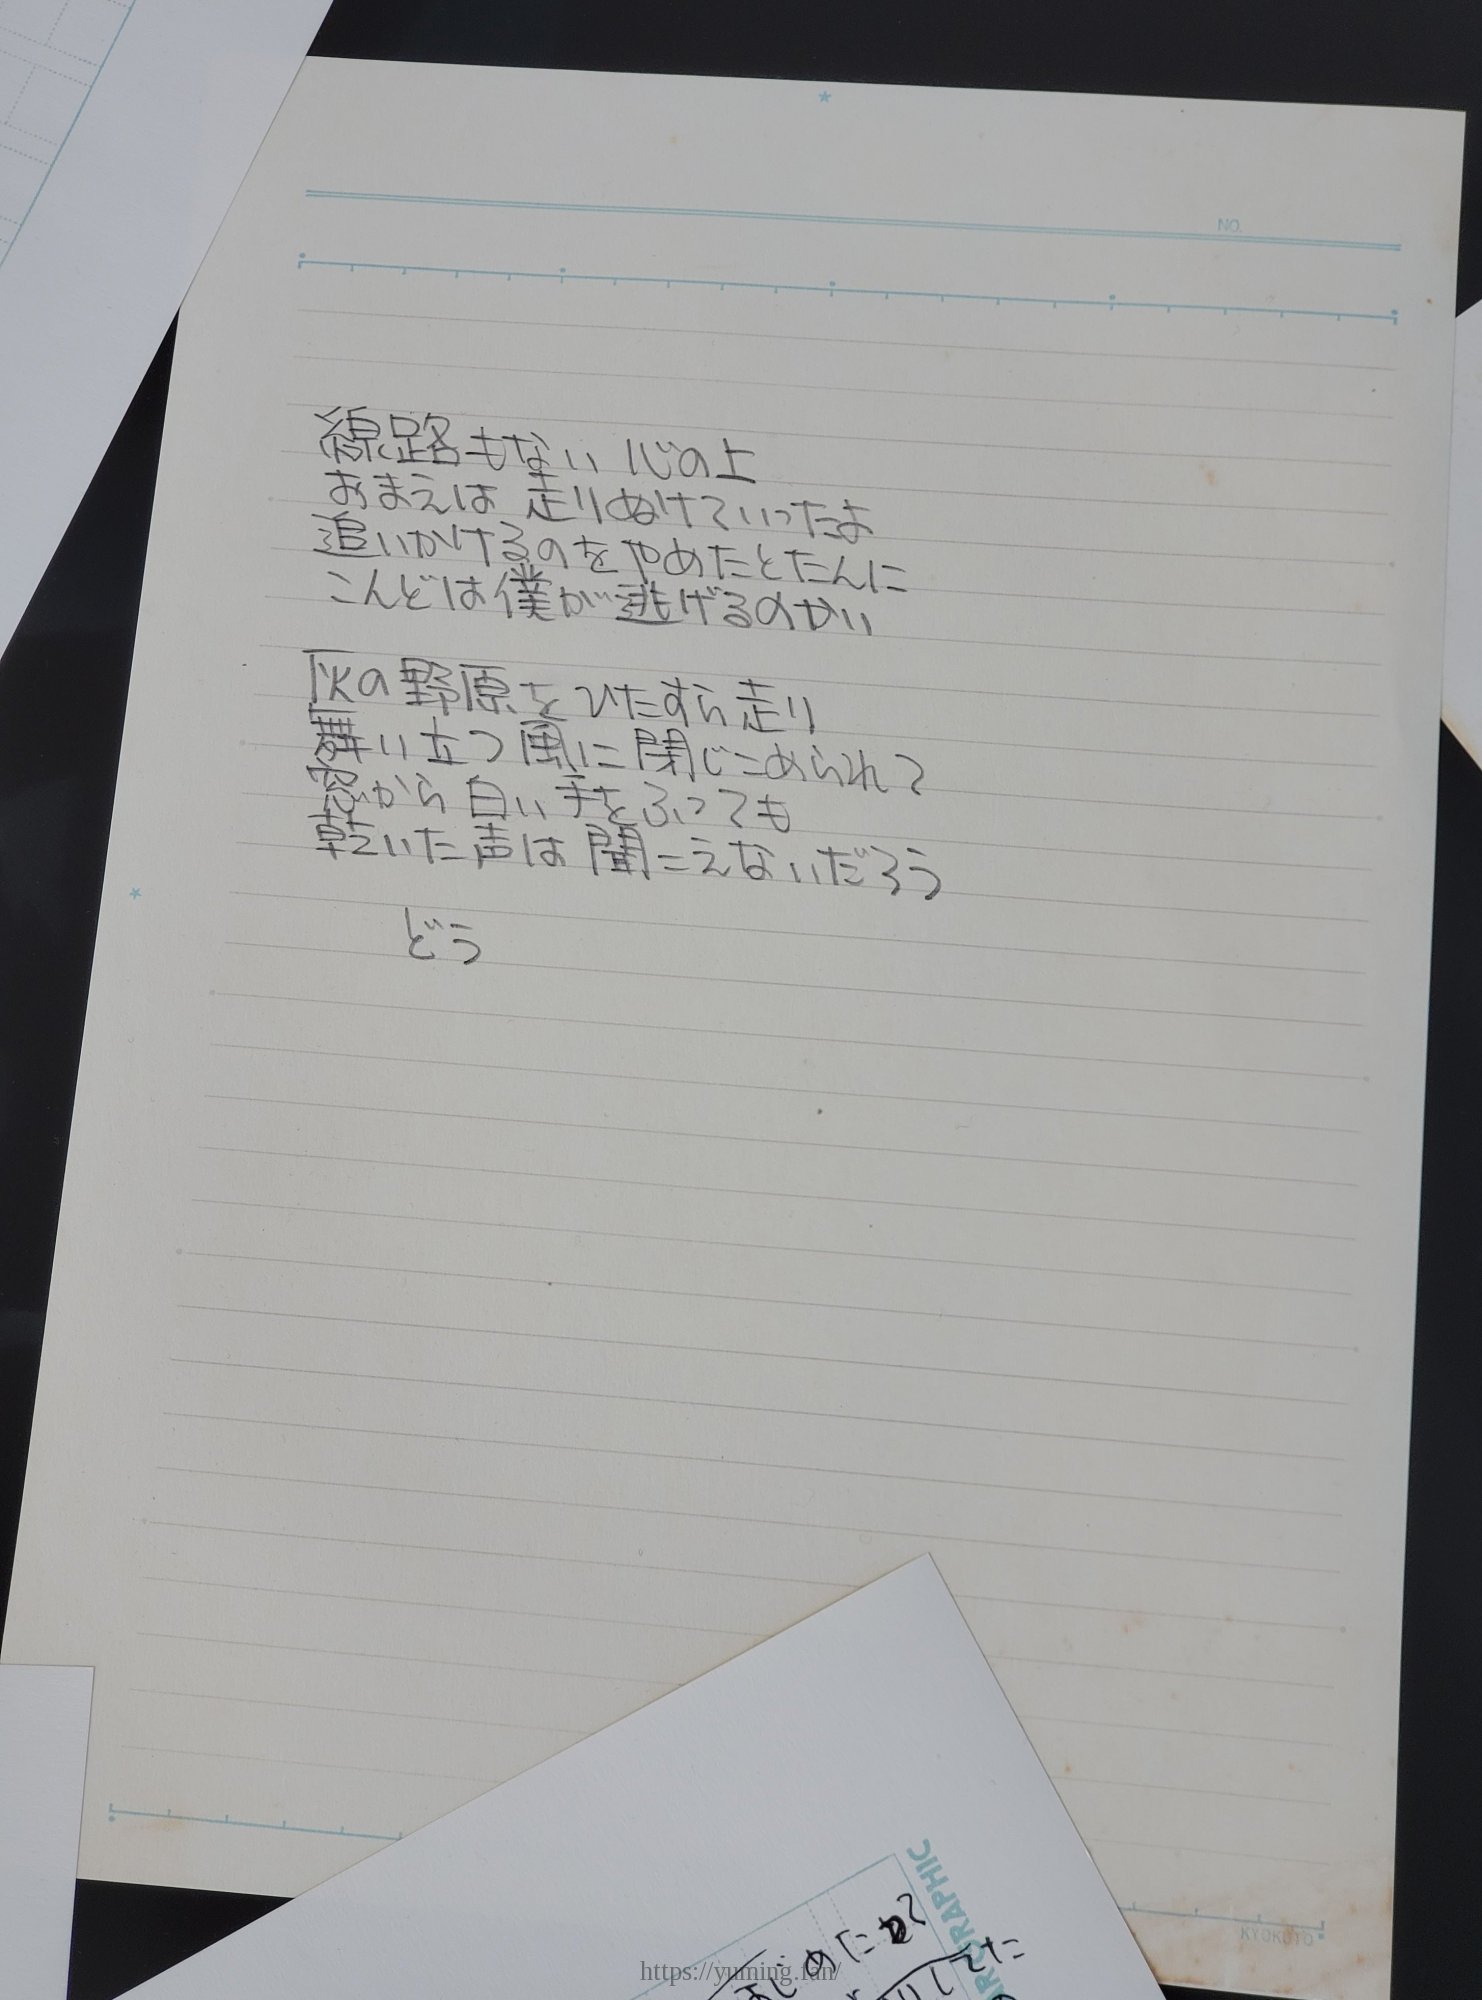 NO.
線路もない心の上
おまえは 走りぬけていったよ
追いかけるのをやめたとたんに
こんどは僕が逃げるのかい
灰の野原をひたすら走り
舞い立つ風に閉じこめられて
窓から白い手をふっても
乾いた声は聞こえないだろう
どう
KYOKUTO
https://yuming.fan/